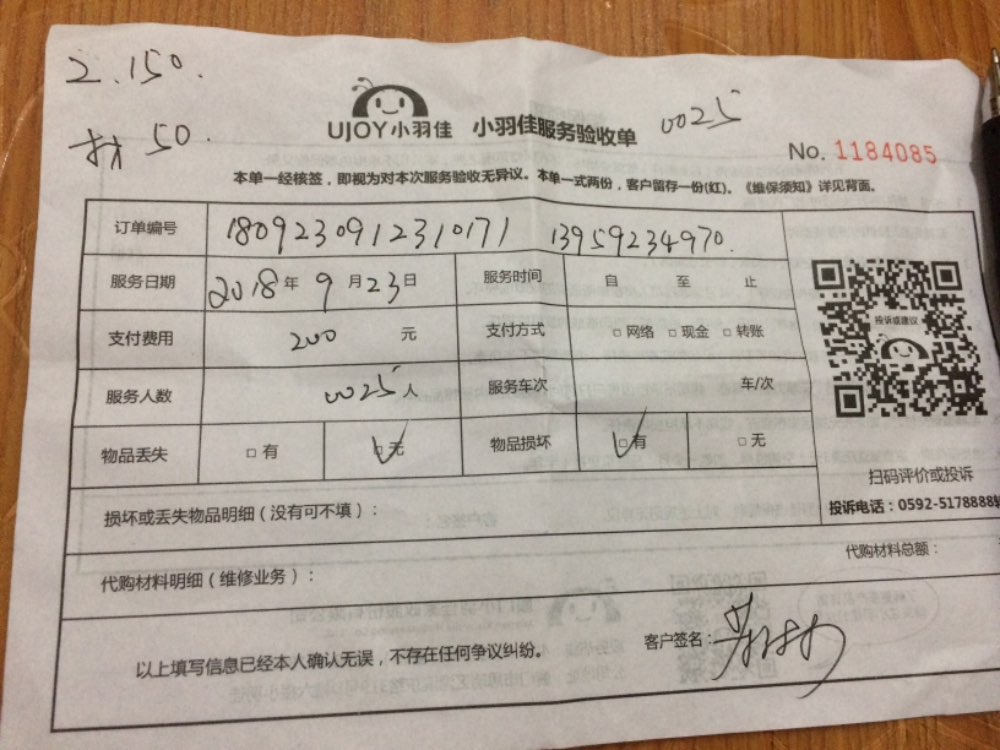 2.150.
找50.
UJOY小羽佳 小羽佳服务验收单 0025
No. 1184085
本单一经核签，即视为对本次服务验收无异议。本单一式两份，客户留存一份(红)。《维保须知》详见背面。
订单编号 1809230912310171 13959234970.
服务日期 2018年9月23日 服务时间 自 至 止
支付费用 200 元 支付方式 □网络 □现金 □转账
投诉或建议
服务人数 0025人 服务车次 车/次
物品丢失 □有 □无 物品损坏 □有 □无
扫码评价或投诉
投诉电话：0592-5178888转
损坏或丢失物品明细（没有可不填）：
代购材料明细（维修业务）： 代购材料总额：
以上填写信息已经本人确认无误，不存在任何争议纠纷。 客户签名：